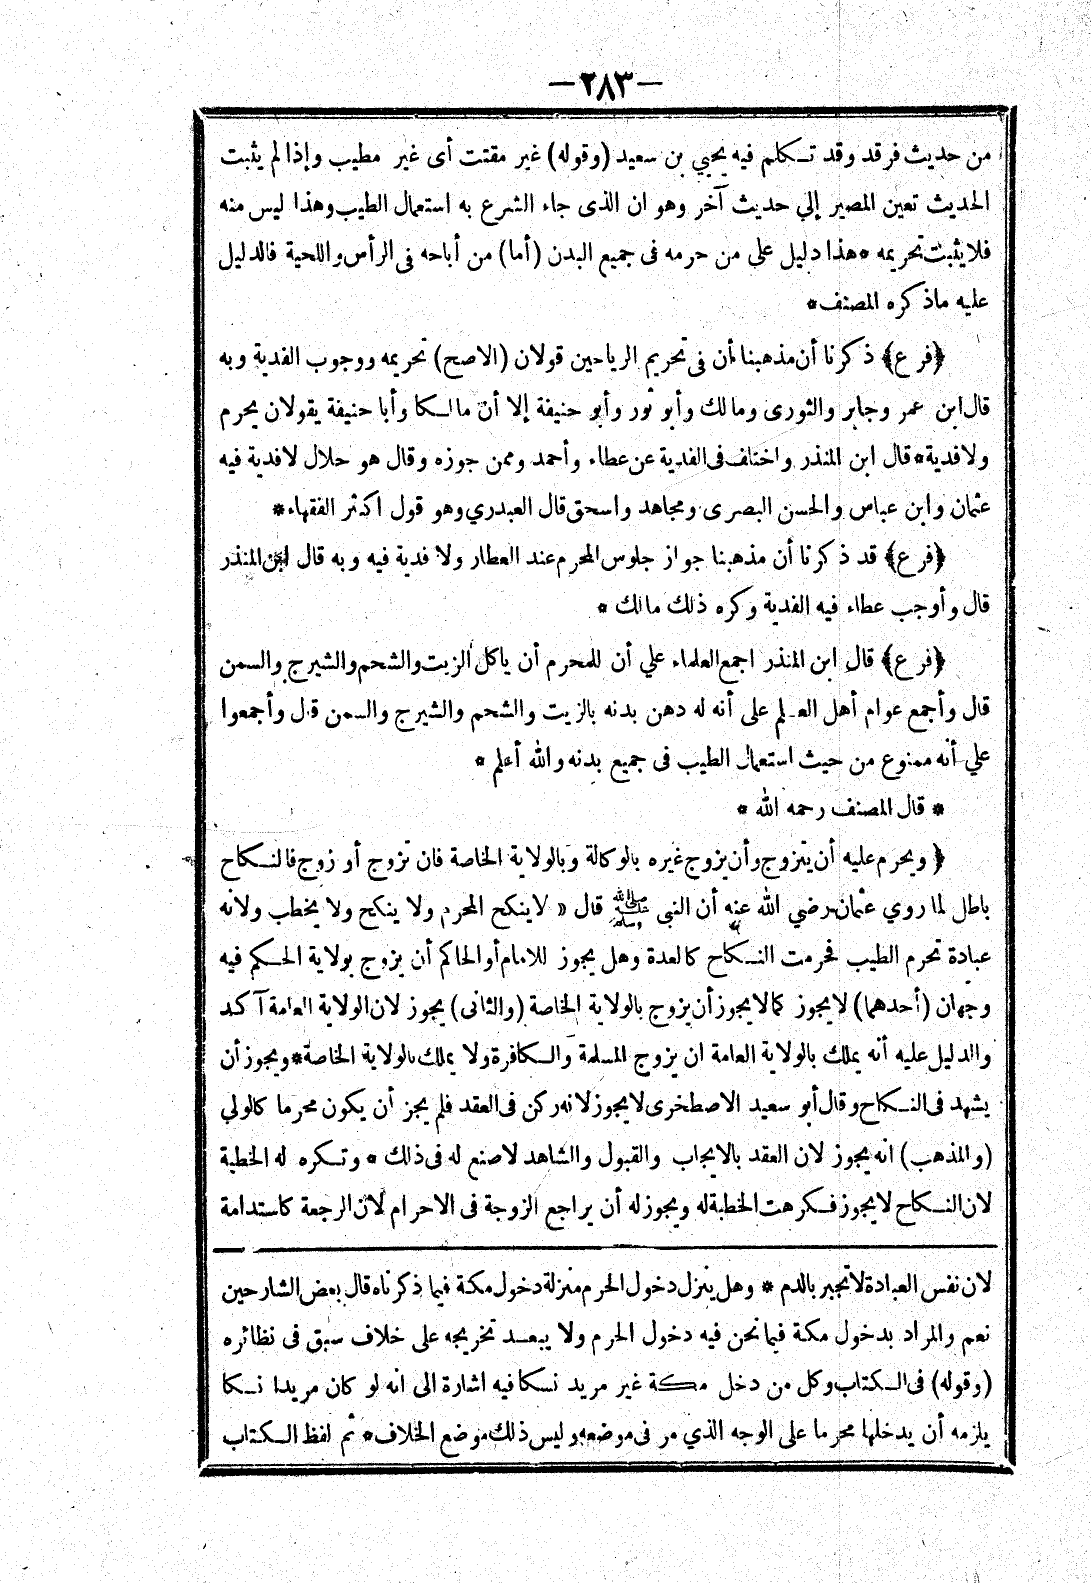 —٢٨٣—
من حديث فرقد وقد تكلم فيه يحيي بن سعيد (وقوله) غير مقتت أى غير مطيب وإذا لم يثبت
الحديث تعين المصير إلي حديث آخر وهو ان الذى جاء الشرع به استعمال الطيب وهذا ليس منه
فلا يثبت تحريمه * هذا دليل علي من حرمه فى جميع البدن (أما) من أباحه فى الرأس واللحية فالدليل
عليه ماذكره المصنف *
﴿فرع﴾ ذكرنا أن مذهبنا أن فى تحريم الرياحين قولان (الاصح) تحريمه ووجوب الفدية وبه
قال ابن عمر وجابر والثورى ومالك وأبو ثور وأبو حنيفة إلا أن مالكا وأبا حنيفة يقولان يحرم
ولا فدية * قال ابن المنذر واختلف فى الفدية عن عطاء وأحمد وممن جوزه وقال هو حلال لا فدية فيه
عثمان وابن عباس والحسن البصرى ومجاهد واسحق قال العبدري وهو قول اكثر الفقهاء *
﴿فرع﴾ قد ذكرنا أن مذهبنا جواز جلوس المحرم عند العطار ولا فدية فيه وبه قال ابن المنذر
قال وأوجب عطاء فيه الفدية وكره ذلك مالك *
﴿فرع﴾ قال ابن المنذر اجمع العلماء علي أن للمحرم أن ياكل الزيت والشحم والشيرج والسمن
قال وأجمع عوام أهل العلم على أنه له دهن بدنه بالزيت والشحم والشيرج والسمن قال وأجمعوا
علي أنه ممنوع من حيث استعمال الطيب فى جميع بدنه والله أعلم *
* قال المصنف رحمه الله *
﴿ويحرم عليه أن يتزوج وأن يزوج غيره بالوكالة وبالولاية الخاصة فان تزوج أو زوج فالنكاح
باطل لما روي عثمان رضي الله عنه أن النبى ﷺ قال « لا ينكح المحرم ولا ينكح ولا يخطب ولانه
عبادة تحرم الطيب فحرمت النكاح كالعدة وهل يجوز للامام أو الحاكم أن يزوج بولاية الحكم فيه
وجهان (أحدهما) لا يجوز كما لا يجوز أن يزوج بالولاية الخاصة (والثانى) يجوز لان الولاية العامة آكد
والدليل عليه أنه يملك بالولاية العامة ان يزوج المسلمة والكافرة ولا يملك بالولاية الخاصة * ويجوز أن
يشهد فى النكاح وقال أبو سعيد الاصطخرى لا يجوز لانه ركن فى العقد فلم يجز أن يكون محرما كالولي
(والمذهب) انه يجوز لان العقد بالايجاب والقبول والشاهد لا صنع له فى ذلك * وتكره له الخطبة
لان النكاح لا يجوز فكرهت الخطبة له ويجوز له أن يراجع الزوجة فى الاحرام لان الرجعة كاستدامة
لان نفس العبادة لا تجبر بالدم * وهل ينزل دخول الحرم منزلة دخول مكة فيما ذكرناه قال بعض الشارحين
نعم والمراد بدخول مكة فيما نحن فيه دخول الحرم ولا يبعد تخريجه على خلاف سبق فى نظائره
(وقوله) فى الكتاب وكل من دخل مكة غير مريد نسكا فيه اشارة الى انه لو كان مريدا نسكا
يلزمه أن يدخلها محرما على الوجه الذي مر فى موضعه وليس ذلك موضع الخلاف * ثم لفظ الكتاب